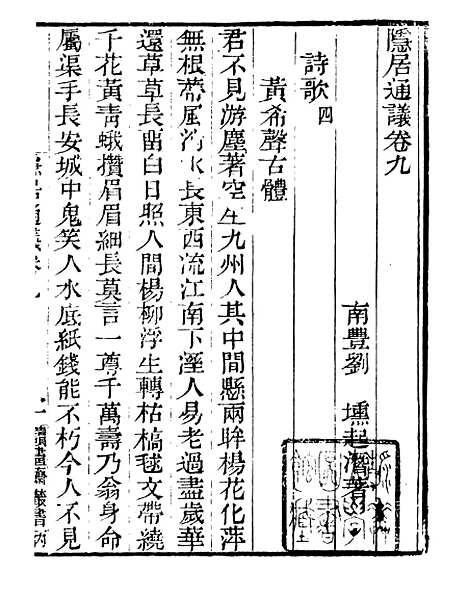 隱居通議卷九
南豐劉　壎起潛著
詩歌四
黃希聲古體
君不見游塵著空生九州人其中間懸兩眸楊花化萍
無根蔕風濤水長東西流江南下溼人易老過盡歲華
還草草長凿白日照人間楊柳浮生轉枯槁毬文帶繞
千花黃靑蛾攢眉眉細長莫言一尊千萬壽乃翁身命
屬渠手長安城中鬼笑人水底紙錢能不朽今人不見
隱居通議卷九　一　讀畫齋叢書丙